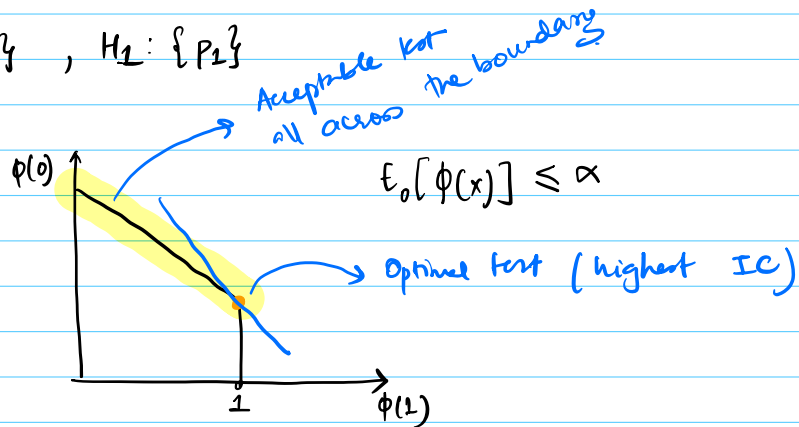 } , H₁ : {p₁}
Acceptable test
all across the boundary
φ(0)
E₀[φ(x)] ≤ α
Optimal test (highest IC)
1
φ(1)